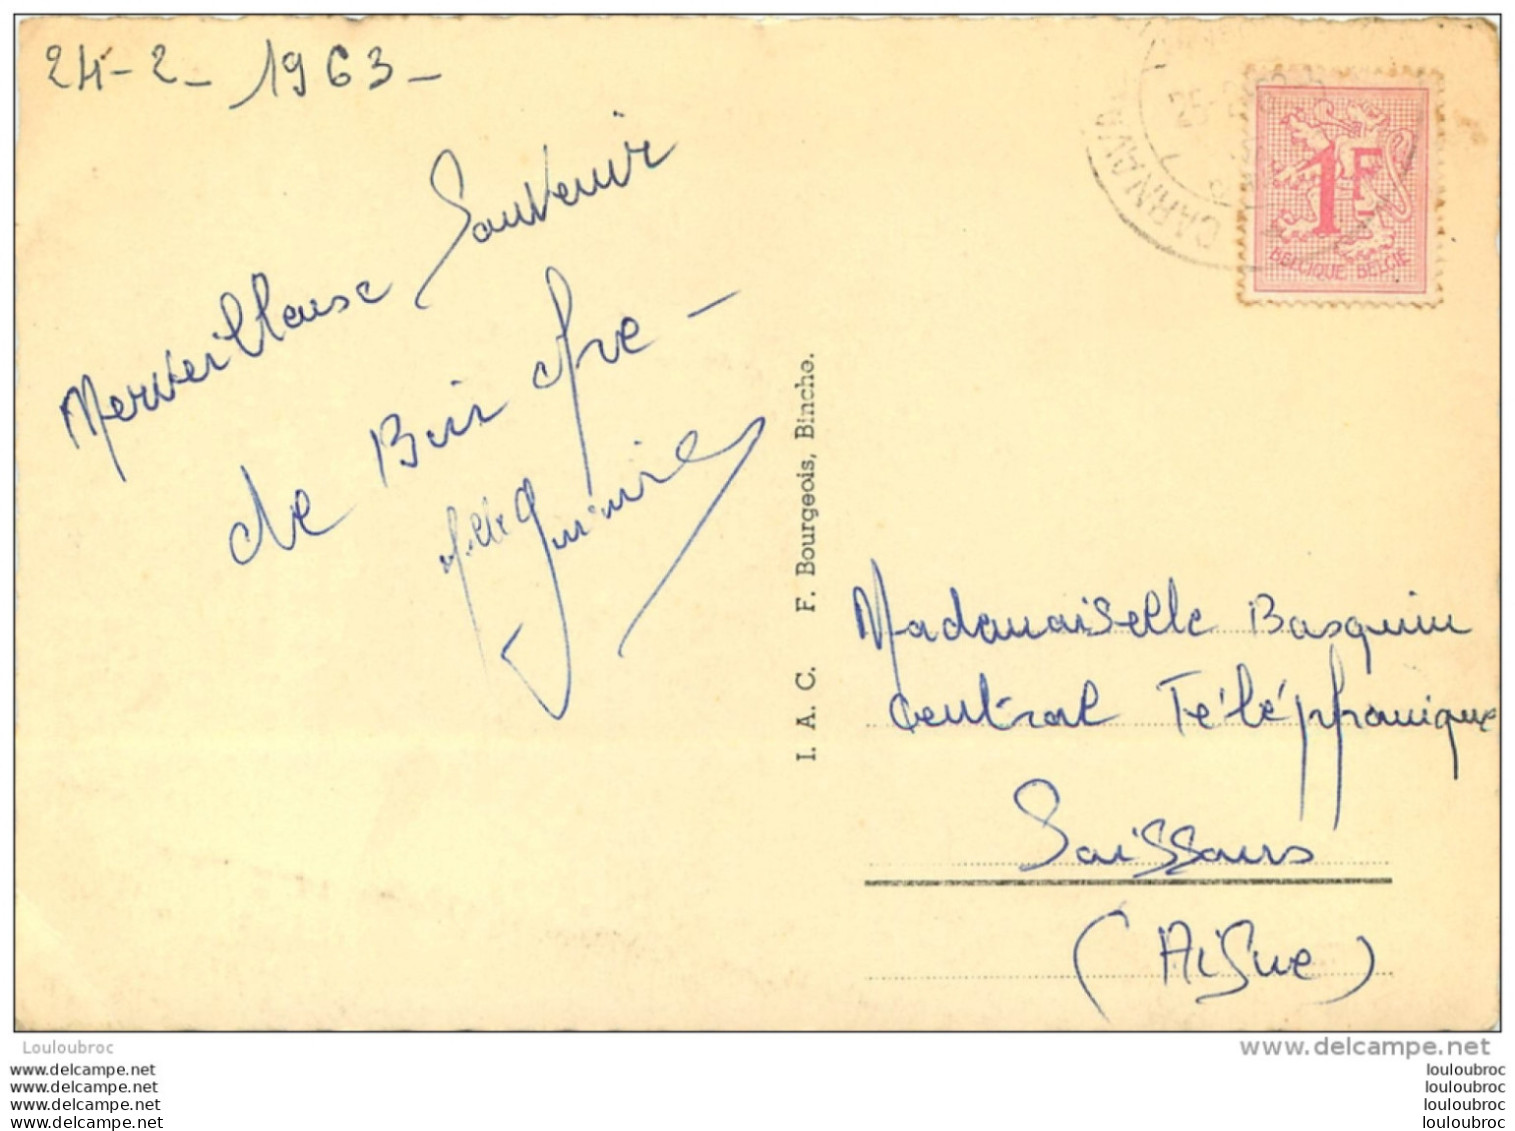 24-2-1963-
Merveilleuse Souvenir
de Binche -
Melle
Mademoiselle Basquin
Central Téléphonique
Soissons
(Aisne)
I. A. C. F. Bourgeois, Binche.
CARNAVAL
25-2
1F
BELGIQUE-BELGIË
Louloubroc
www.delcampe.net
www.delcampe.net
www.delcampe.net
www.delcampe.net
www.delcampe.net
louloubroc
louloubroc
louloubroc
louloubroc